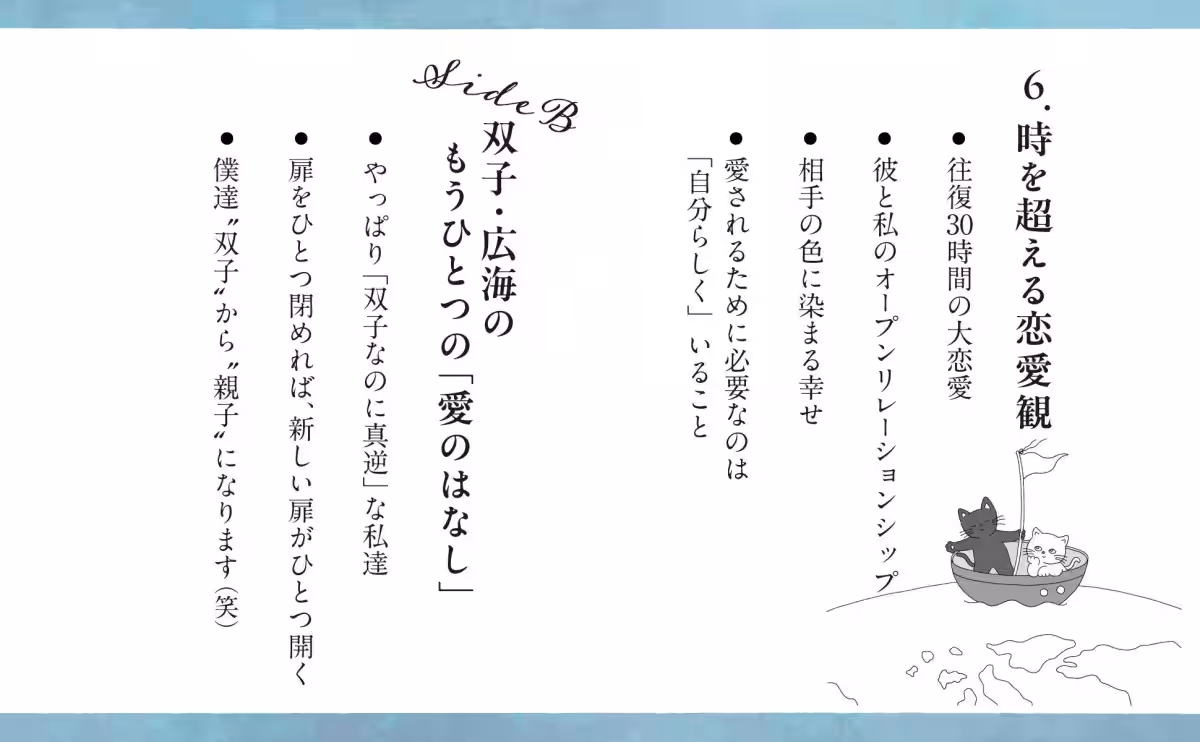 6. 時を超える恋愛観
● 往復30時間の大恋愛
● 彼と私のオープンリレーションシップ
● 相手の色に染まる幸せ
● 愛されるために必要なのは
「自分らしく」いること
Side B
双子・広海の
もうひとつの「愛のはなし」
● やっぱり「双子なのに真逆」な私達
● 扉をひとつ閉めれば、新しい扉がひとつ開く
● 僕達〝双子〟から〝親子〟になります(笑)